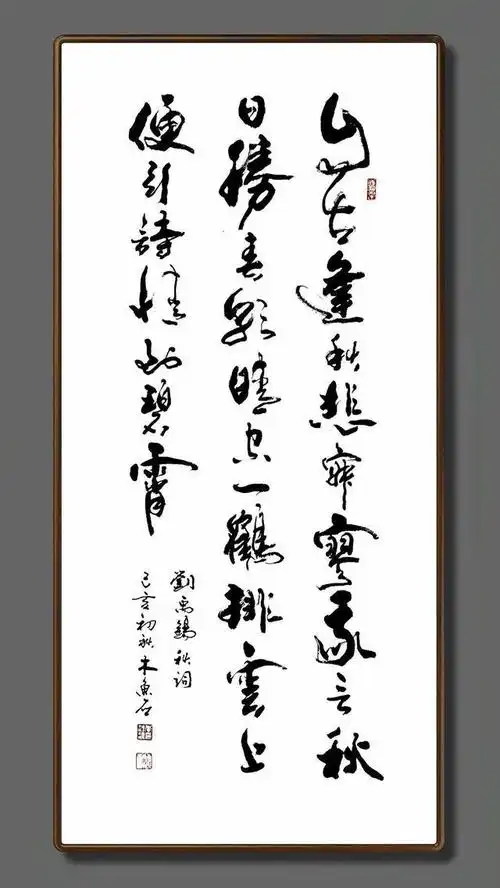 自古逢秋悲寂寥我言秋
日勝春朝晴空一鶴排雲上
便引詩情到碧霄
劉禹錫秋詞
己亥初秋木魚石